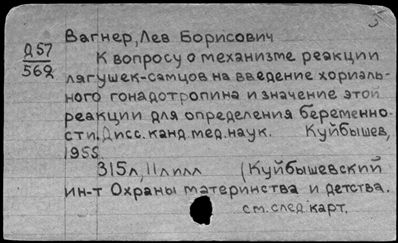 Вагнер, Лев Борисович
Д57
562
К вопросу о механизме реакции
лягушек-самцов на введение хориаль-
ного гонадотропина и значение этой
реакции для определения беременно-
сти. Дисс. канд. мед. наук. Куйбышев,
1955.
315л, 11л илл (Куйбышевский
ин-т Охраны материнства и детства.
см. след карт.